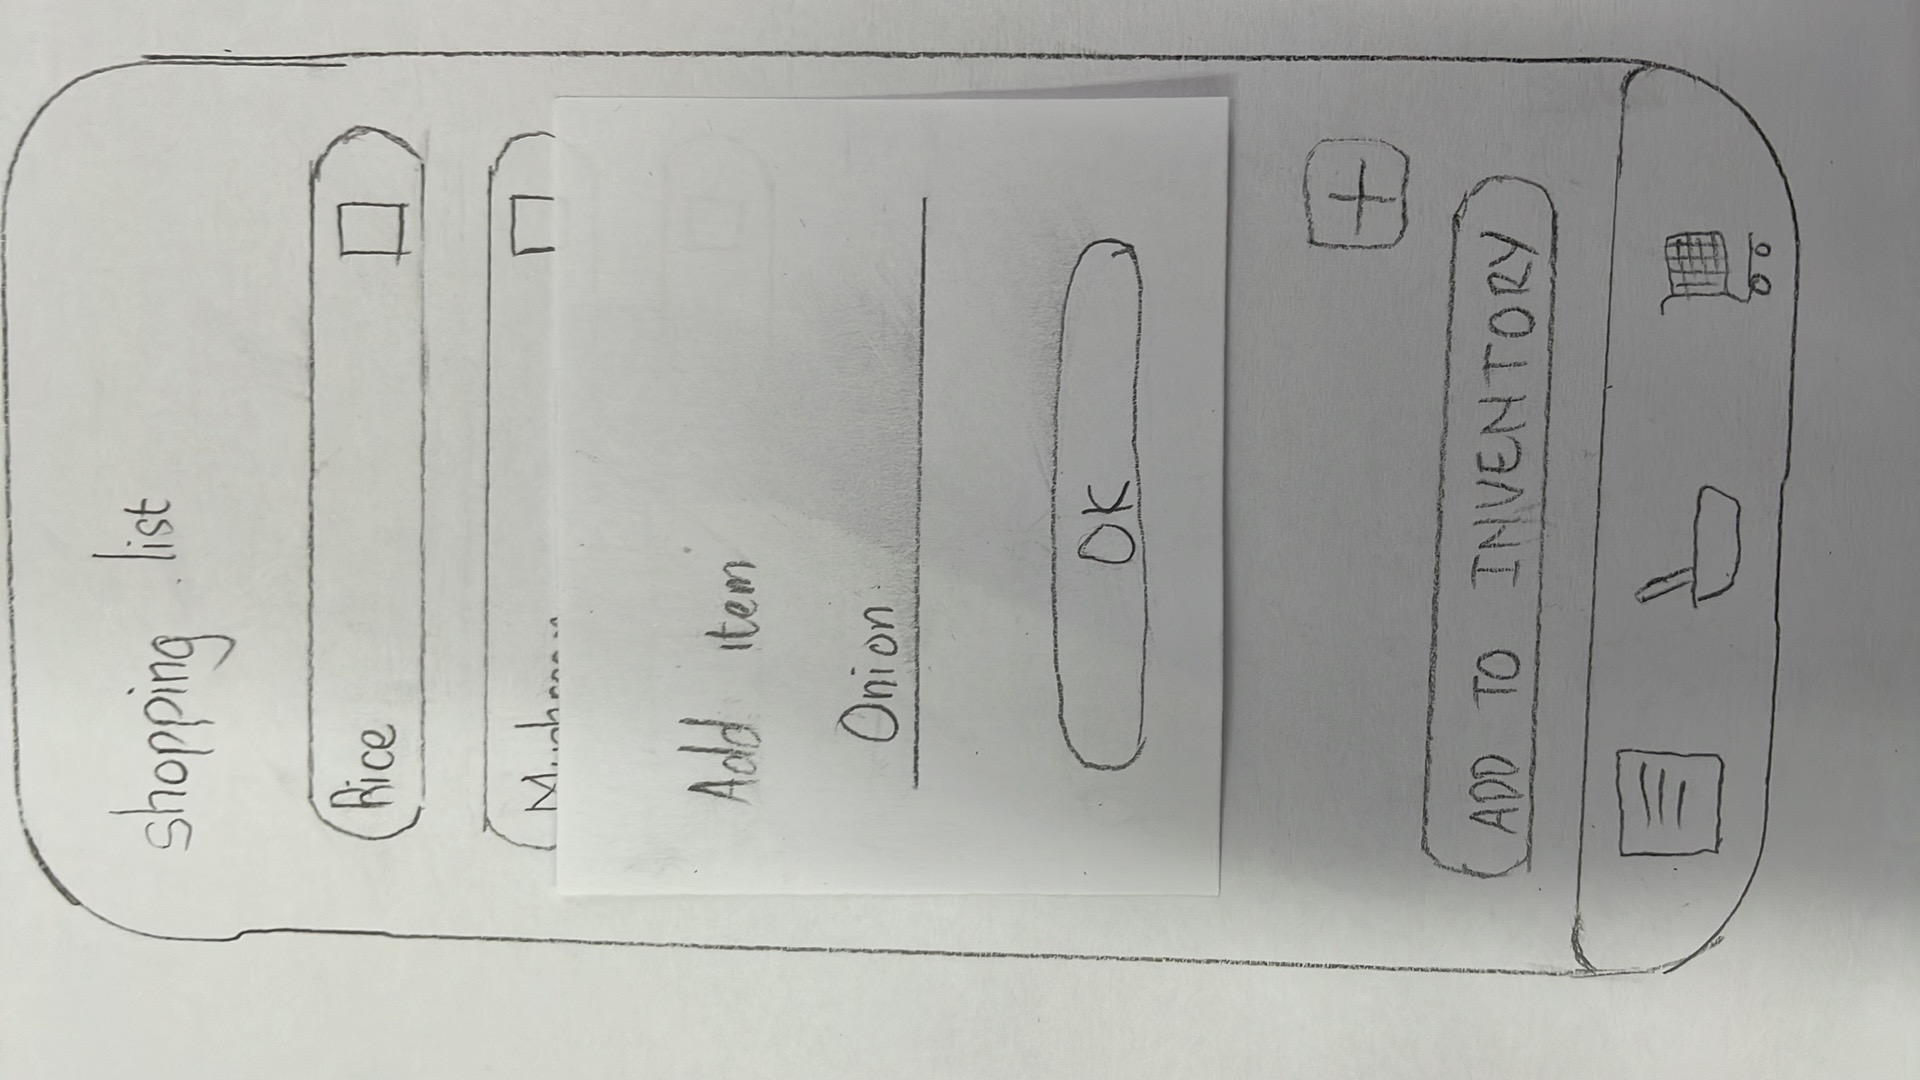 shopping list
Rice
Mushroom
Add item
Onion
OK
+
ADD TO INVENTORY